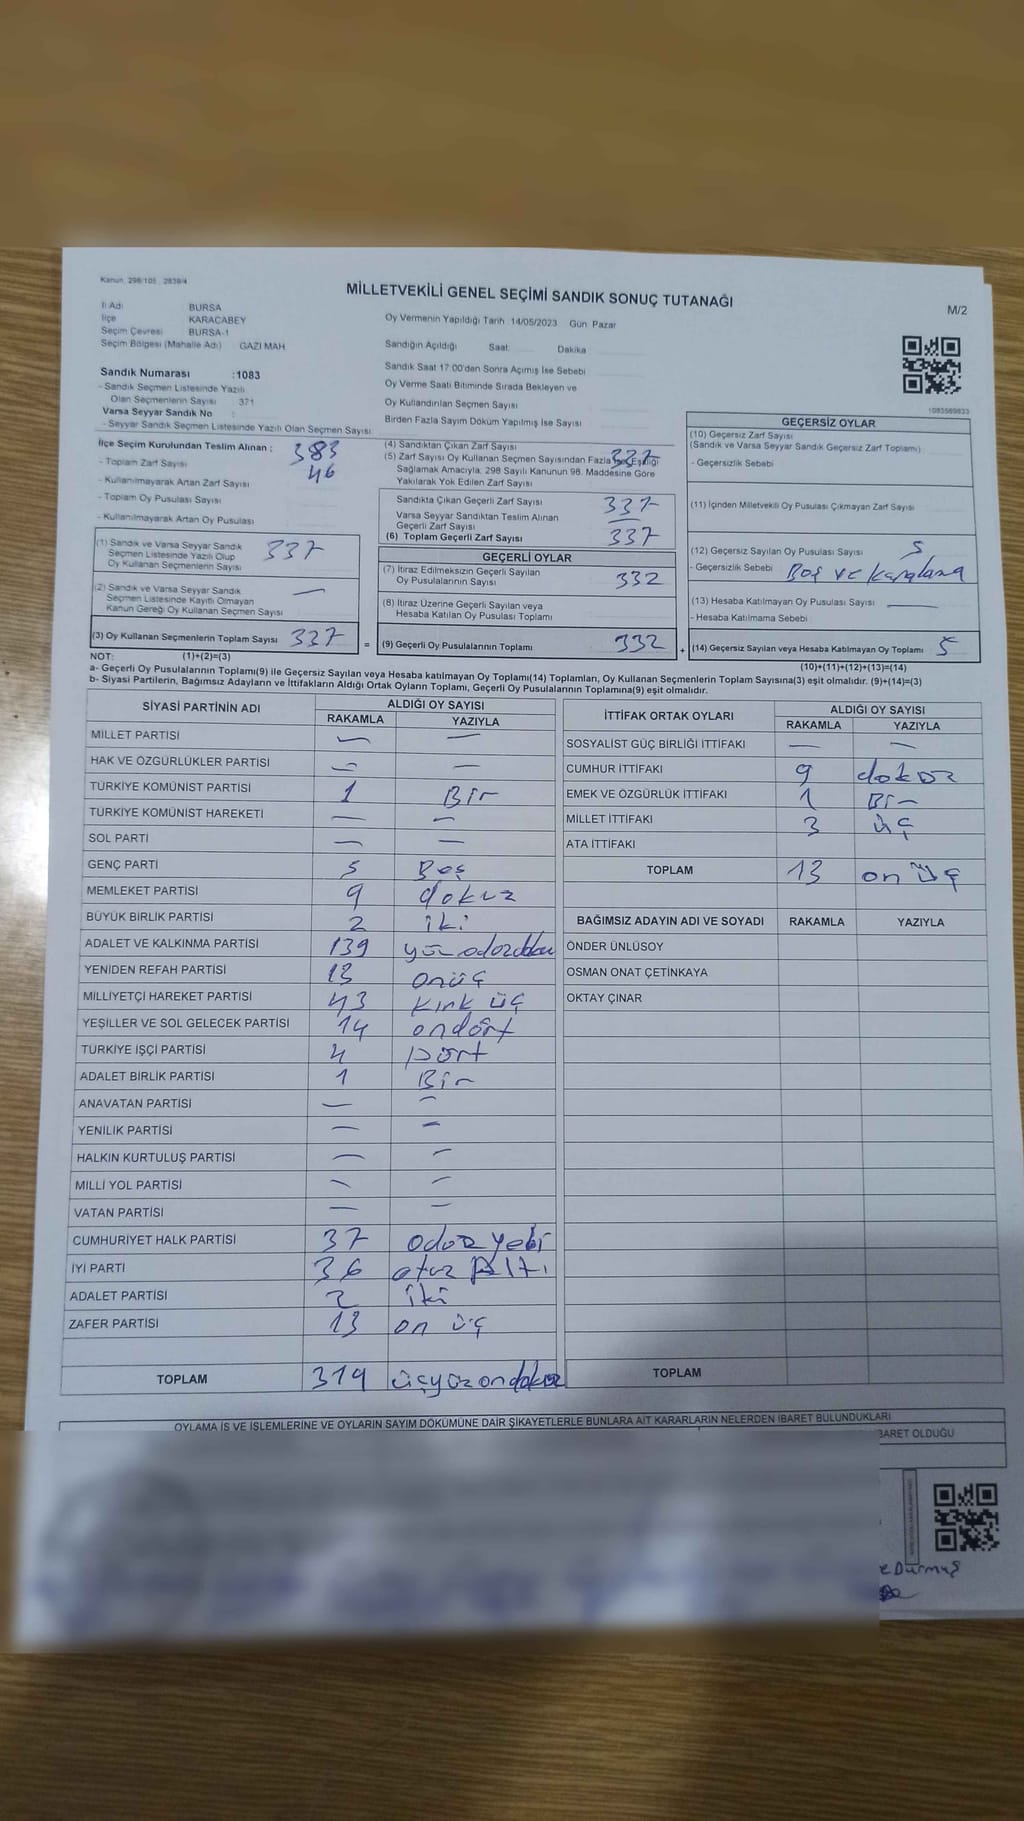 Kanun 298/105 2839/4
MİLLETVEKİLİ GENEL SEÇİMİ SANDIK SONUÇ TUTANAĞI
M/2
İl Adı BURSA
İlçe KARACABEY
Seçim Çevresi BURSA-1
Seçim Bölgesi (Mahalle Adı) GAZİ MAH
Sandık Numarası :1083
- Sandık Seçmen Listesinde Yazılı
Olan Seçmenlerin Sayısı : 371
Varsa Seyyar Sandık No :
- Seyyar Sandık Seçmen Listesinde Yazılı Olan Seçmen Sayısı
Oy Vermenin Yapıldığı Tarih :14/05/2023 Gün Pazar
Sandığın Açıldığı Saat Dakika
Sandık Saat 17:00'den Sonra Açımış İse Sebebi
Oy Verme Saati Bitiminde Sırada Bekleyen ve
Oy Kullandırılan Seçmen Sayısı
Birden Fazla Sayım Döküm Yapılmış İse Sayısı
1083569833
İlçe Seçim Kurulundan Teslim Alınan ;
- Toplam Zarf Sayısı 383
- Kullanılmayarak Artan Zarf Sayısı 46
- Toplam Oy Pusulası Sayısı
- Kullanılmayarak Artan Oy Pusulası
(1) Sandık ve Varsa Seyyar Sandık
Seçmen Listesinde Yazılı Olup
Oy Kullanan Seçmenlerin Sayısı 337
(2) Sandık ve Varsa Seyyar Sandık
Seçmen Listesinde Kayıtlı Olmayan
Kanun Gereği Oy Kullanan Seçmen Sayısı —
(3) Oy Kullanan Seçmenlerin Toplam Sayısı 337 =
(4) Sandıktan Çıkan Zarf Sayısı 337
(5) Zarf Sayısı Oy Kullanan Seçmen Sayısından Fazla İse Eşitliği
Sağlamak Amacıyla; 298 Sayılı Kanunun 98. Maddesine Göre
Yakılarak Yok Edilen Zarf Sayısı
Sandıkta Çıkan Geçerli Zarf Sayısı 337
Varsa Seyyar Sandıktan Teslim Alınan
Geçerli Zarf Sayısı —
(6) Toplam Geçerli Zarf Sayısı 337
GEÇERLİ OYLAR
(7) İtiraz Edilmeksizin Geçerli Sayılan
Oy Pusulalarının Sayısı 332
(8) İtiraz Üzerine Geçerli Sayılan veya
Hesaba Katılan Oy Pusulaları Toplamı
(9) Geçerli Oy Pusulalarının Toplamı 332 +
GEÇERSİZ OYLAR
(10) Geçersiz Zarf Sayısı
(Sandık ve Varsa Seyyar Sandık Geçersiz Zarf Toplamı)
- Geçersizlik Sebebi
(11) İçinden Milletvekili Oy Pusulası Çıkmayan Zarf Sayısı
(12) Geçersiz Sayılan Oy Pusulası Sayısı 5
- Geçersizlik Sebebi Boş ve Karalama
(13) Hesaba Katılmayan Oy Pusulası Sayısı —
- Hesaba Katılmama Sebebi
(14) Geçersiz Sayılan veya Hesaba Katılmayan Oy Toplamı 5
NOT: (1)+(2)=(3) (10)+(11)+(12)+(13)=(14)
a- Geçerli Oy Pusulalarının Toplamı(9) ile Geçersiz Sayılan veya Hesaba katılmayan Oy Toplamı(14) Toplamları, Oy Kullanan Seçmenlerin Toplam Sayısına(3) eşit olmalıdır. (9)+(14)=(3)
b- Siyasi Partilerin, Bağımsız Adayların ve İttifakların Aldığı Ortak Oyların Toplamı, Geçerli Oy Pusulalarının Toplamına(9) eşit olmalıdır.
SİYASİ PARTİNİN ADI ALDIĞI OY SAYISI
RAKAMLA YAZIYLA
MİLLET PARTİSİ — —
HAK VE ÖZGÜRLÜKLER PARTİSİ — —
TÜRKİYE KOMÜNİST PARTİSİ 1 Bir
TÜRKİYE KOMÜNİST HAREKETİ — —
SOL PARTİ — —
GENÇ PARTİ 5 Beş
MEMLEKET PARTİSİ 9 dokuz
BÜYÜK BİRLİK PARTİSİ 2 iki
ADALET VE KALKINMA PARTİSİ 139
YENİDEN REFAH PARTİSİ 13 onüç
MİLLİYETÇİ HAREKET PARTİSİ 43 kırk üç
YEŞİLLER VE SOL GELECEK PARTİSİ 14 ondört
TÜRKİYE İŞÇİ PARTİSİ 4 Dört
ADALET BİRLİK PARTİSİ 1 Bir
ANAVATAN PARTİSİ — —
YENİLİK PARTİSİ — —
HALKIN KURTULUŞ PARTİSİ — —
MİLLİ YOL PARTİSİ — —
VATAN PARTİSİ — —
CUMHURİYET HALK PARTİSİ 37 oduz yedi
İYİ PARTİ 36 otuz Altı
ADALET PARTİSİ 2 iki
ZAFER PARTİSİ 13 on üç
TOPLAM 319 üçyüzondokuz
İTTİFAK ORTAK OYLARI ALDIĞI OY SAYISI
RAKAMLA YAZIYLA
SOSYALİST GÜÇ BİRLİĞİ İTTİFAKI — —
CUMHUR İTTİFAKI 9 dokuz
EMEK VE ÖZGÜRLÜK İTTİFAKI 1 Bir
MİLLET İTTİFAKI 3 üç
ATA İTTİFAKI
TOPLAM 13 on üç
BAĞIMSIZ ADAYIN ADI VE SOYADI RAKAMLA YAZIYLA
ÖNDER ÜNLÜSOY
OSMAN ONAT ÇETİNKAYA
OKTAY ÇINAR
TOPLAM
OYLAMA İŞ VE İŞLEMLERİNE VE OYLARIN SAYIM DÖKÜMÜNE DAİR ŞİKAYETLERLE BUNLARA AİT KARARLARIN NELERDEN İBARET BULUNDUKLARI
BARET OLDUĞU
e Durmuş